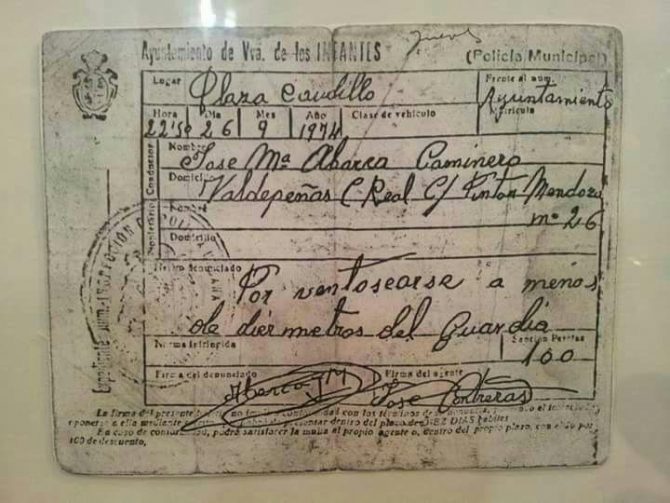 Jueves
Ayuntamiento de Vvá. de los INFANTES (Policía Municipal)
Lugar Plaza Caudillo Frente al núm. Ayuntamiento
Hora Día Mes Año Clase de vehículo Matrícula
22'50 26 9 1974
Conductor Nombre Jose Mª Abarca Caminero
Domicilio Valdepeñas C. Real C/ Pintor Mendoza
Nombre nº 26
Domicilio
Hecho denunciado
Por ventosearse a menos
de diez metros del Guardia
Norma infringida Sanción Pesetas
100
Firma del denunciado Firma del agente
Abarca JM Jose Contreras
La firma del presente con los términos de
oponerse a ella mediante dentro del plazo de DIEZ DIAS hábiles
En caso de conformidad, podrá satisfacer la multa al propio agente o, dentro del propio plazo, con el 20 por
100 de descuento.